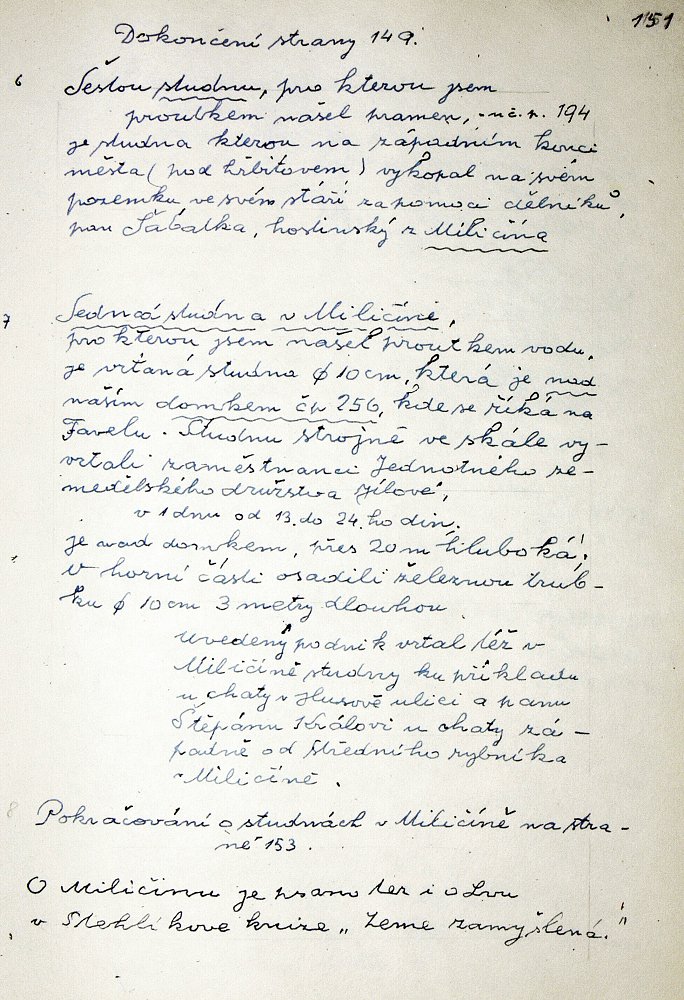 151
Dokončení strany 149.
6 Šestou studnu, pro kterou jsem
proutkem našel pramen, u č.p. 194
je studna kterou na západním konci
města (pod hřbitovem) vykopal na svém
pozemku ve svém stáří za pomoci dělníků,
pan Šábatka, hostinský z Miličína
7 Sedmá studna v Miličíně,
pro kterou jsem našel proutkem vodu,
je vrtaná studna ϕ 10 cm, která je nad
naším domkem čp 256, kde se říká na
Favelu. Studnu strojně ve skále vy-
vrtali zaměstnanci Jednotného ze-
mědělského družstva Jílové,
v 1 dnu od 13. do 24. hodin.
je nad domkem, přes 20 m hluboká!
V horní části osadili železnou trub-
ku ϕ 10 cm 3 metry dlouhou
Uvedený podnik vrtal též v
Miličíně studny ku příkladu
u chaty v Husově ulici a panu
Štěpánu Královi u chaty zá-
padně od Středního rybníka
v Miličíně.
8 Pokračování o studnách v Miličíně na stra-
ně 153.
O Miličínu je psano též i o
v Stehlíkove knize „Zeme zamyšlená."